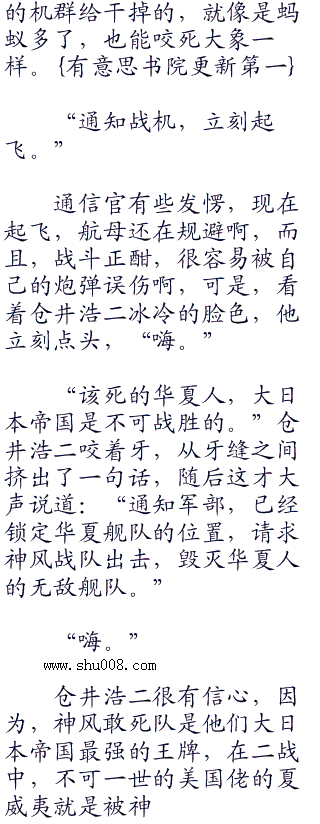 的机群给干掉的，就像是蚂
蚁多了，也能咬死大象一
样。{有意思书院更新第一}
“通知战机，立刻起
飞。”
通信官有些发愣，现在
起飞，航母还在规避啊，而
且，战斗正酣，很容易被自
己的炮弹误伤啊，可是，看
着仓井浩二冰冷的脸色，他
立刻点头，“嗨。”
“该死的华夏人，大日
本帝国是不可战胜的。”仓
井浩二咬着牙，从牙缝之间
挤出了一句话，随后这才大
声说道：“通知军部，已经
锁定华夏舰队的位置，请求
神风战队出击，毁灭华夏人
的无敌舰队。”
“嗨。”
www.shu008.com
仓井浩二很有信心，因
为，神风敢死队是他们大日
本帝国最强的王牌，在二战
中，不可一世的美国佬的夏
威夷就是被神